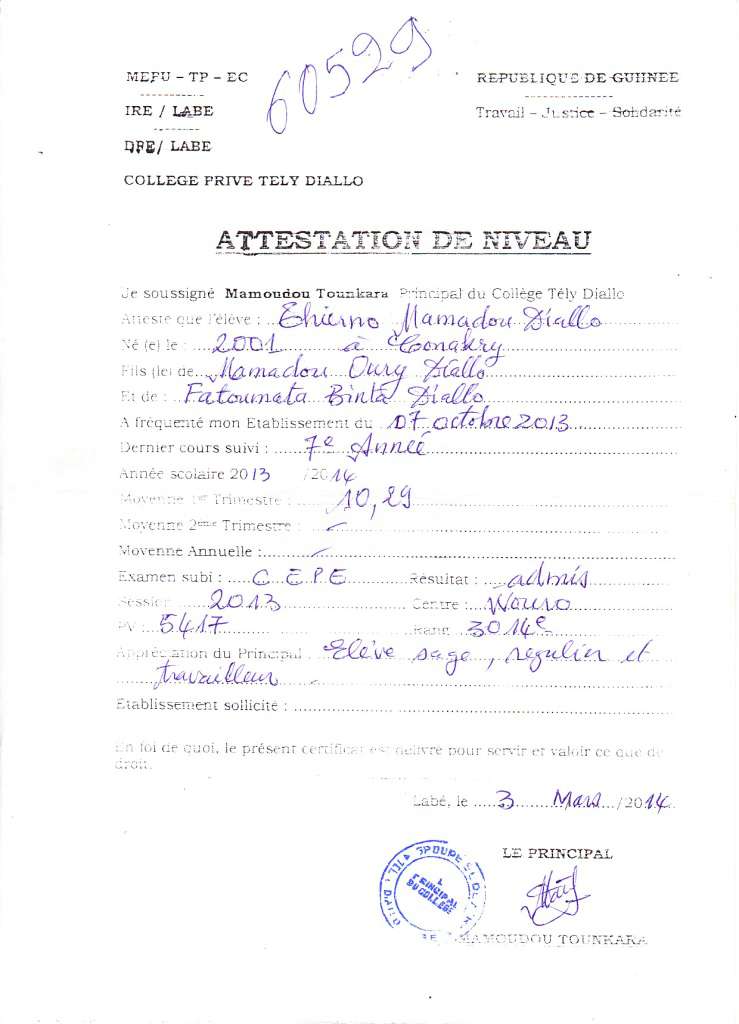 60529
MEPU – TP – EC
REPUBLIQUE DE GUINEE
IRE / LABE
Travail – Justice – Solidarité
DPE/ LABE
COLLEGE PRIVE TELY DIALLO
ATTESTATION DE NIVEAU
Je soussigné Mamoudou Tounkara Principal du Collège Tély Diallo
Atteste que l'élève : Thierno Mamadou Diallo
Né (e) le : 2001 à Conakry
Fils (le) de Mamadou Oury Diallo
Et de : Fatoumata Binta Diallo
A fréquenté mon Etablissement du 07 octobre 2013
Dernier cours suivi : 7e Année
Année scolaire 2013 /2014
Moyenne 1er Trimestre : 10,29
Moyenne 2ème Trimestre : –
Moyenne Annuelle : –
Examen subi : C E P E Résultat : admis
Session 2013 Centre : Wouro
PV : 5417 Rang 3014e
Appréciation du Principal : Elève sage, regulier et
travailleur
Etablissement sollicité :
En foi de quoi, le présent certificat est délivré pour servir et valoir ce que de
droit.
Labé, le 3 Mars /2014
LE PRINCIPAL
PRINCIPAL
DU COLLEGE
MAMOUDOU TOUNKARA